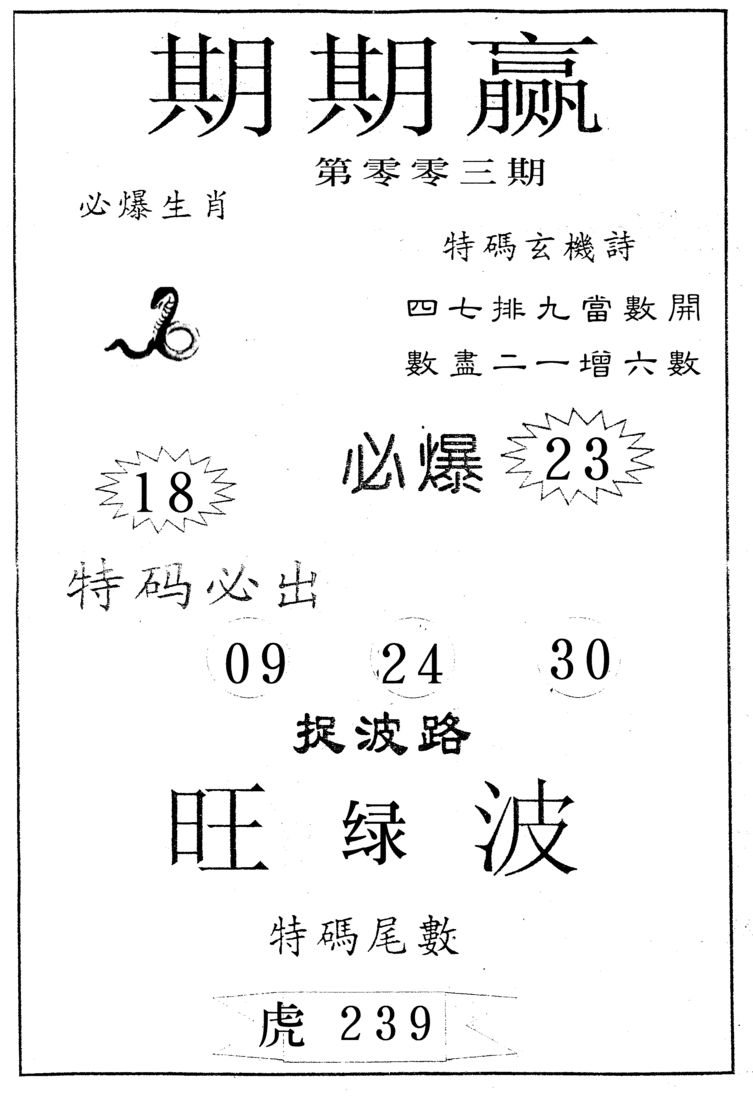 期期赢
第零零三期
必爆生肖
特碼玄機詩
四七排九當數開
數盡二一增六數
18
必爆 23
特码必出
09 24 30
捉波路
旺绿波
特碼尾數
虎 239